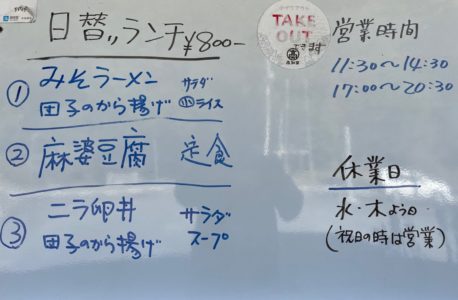 日替〃ランチ ¥800-
① みそラーメン サラダ
団子のから揚げ 小ライス
② 麻婆豆腐 定食
③ ニラ卵丼 サラダ
団子のから揚げ スープ
TAKE
OUT
できます
営業時間
11:30～14:30
17:00～20:30
休業日
水・木よう日
(祝日の時は営業)